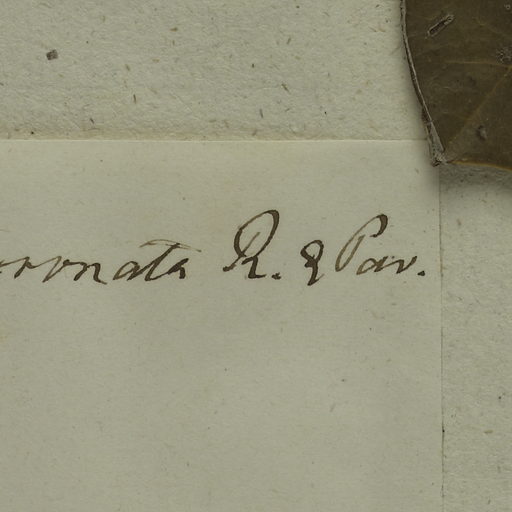 oronata R. & Pav.